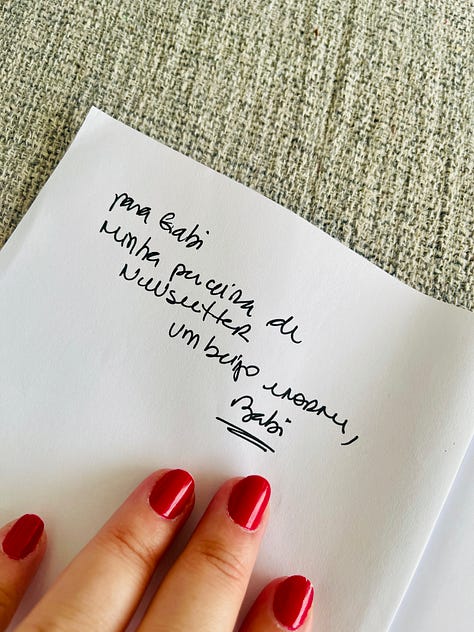 para Gabi
Minha parceira de
Newsletter
um beijo enorme,
Babi